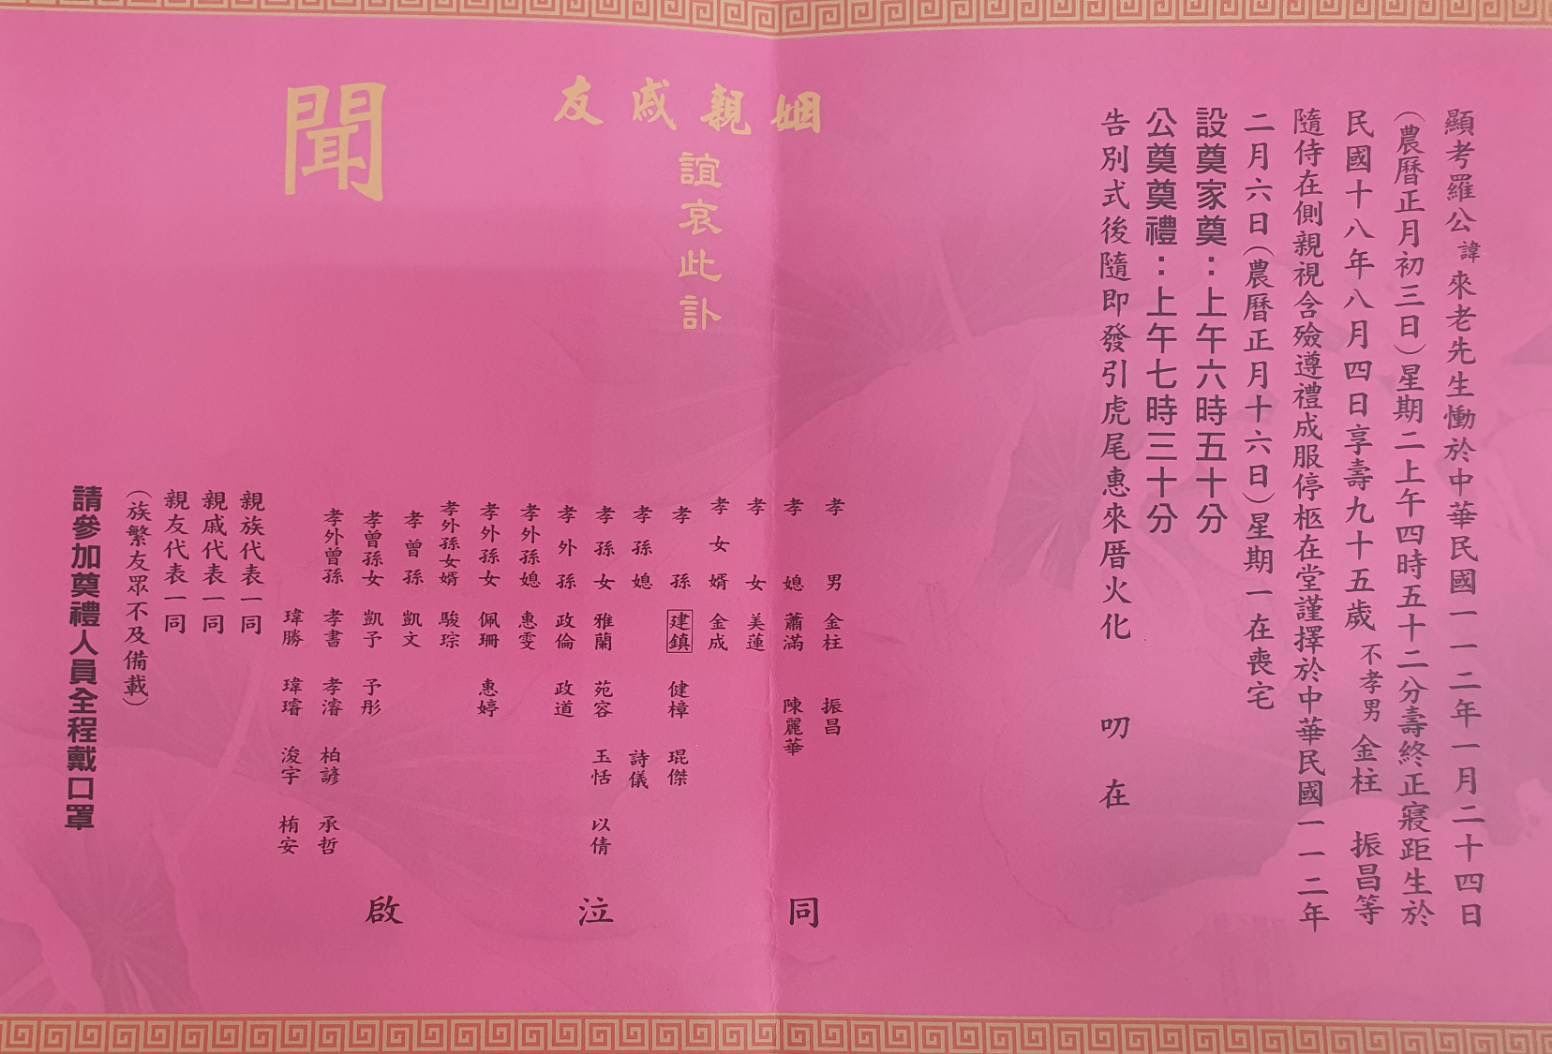 顯考羅公諱來老先生慟於中華民國一一二年一月二十四日
(農曆正月初三日)星期二上午四時五十二分壽終正寢距生於
民國十八年八月四日享壽九十五歲不孝男金柱 振昌等
隨侍在側親視含殮遵禮成服停柩在堂謹擇於中華民國一一二年
二月六日(農曆正月十六日)星期一在喪宅
設奠家奠:上午六時五十分
公奠奠禮:上午七時三十分
告別式後隨即發引虎尾惠來厝火化 叨 在
姻親戚友
誼哀此訃
聞
孝男 金柱 振昌
孝媳 蕭滿 陳麗華
孝女 美蓮
孝女婿 金成
孝孫 建鎮 健樟 琨傑
孝孫媳 詩儀
孝孫女 雅蘭 苑容 玉恬 以倩
孝外孫 政倫 政道
孝外孫媳 惠雯
孝外孫女 佩珊 惠婷
孝外孫女婿 駿琮
孝曾孫 凱文
孝曾孫女 凱予 予彤
孝外曾孫 孝書 孝濬 柏諺 承哲
瑋勝 瑋璿 浚宇 栯安
同 泣 啟
親族代表一同
親戚代表一同
親友代表一同
(族繁友眾不及備載)
請參加奠禮人員全程戴口罩